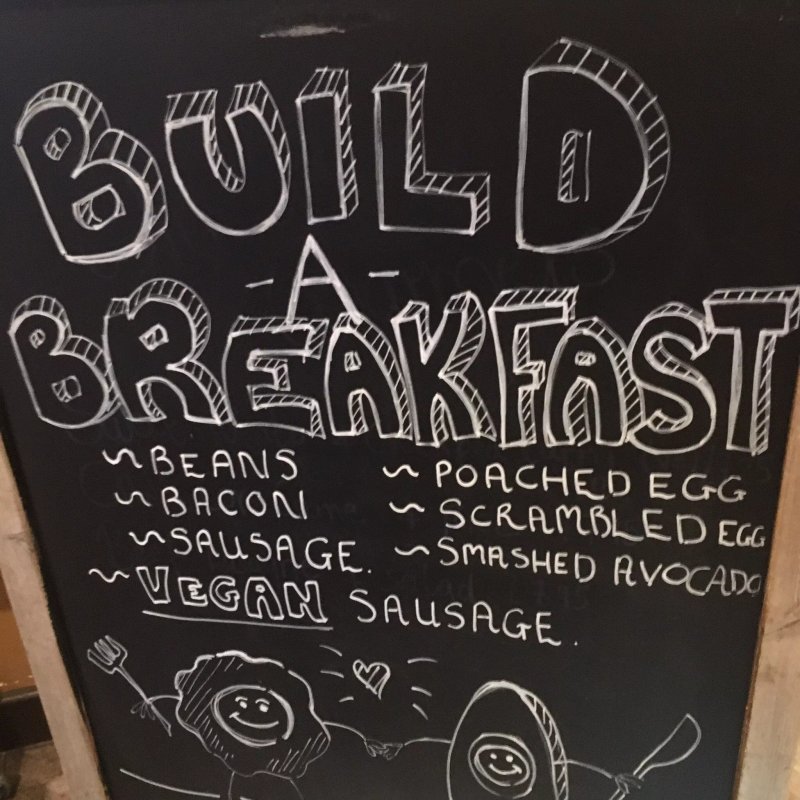 BUILD
-A-
BREAKFAST
~BEANS
~BACON
~SAUSAGE.
~VEGAN SAUSAGE.
~POACHED EGG
~SCRAMBLED EGG
~SMASHED AVOCADO